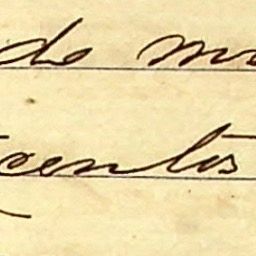 do m
centos